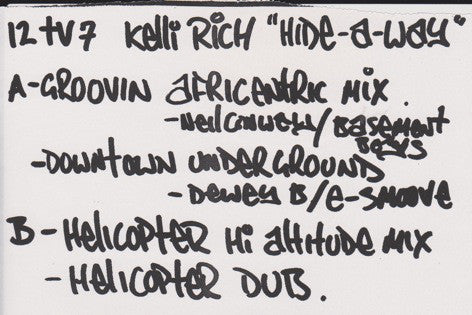 12 tv7 Kelli Rich "Hide-a-way"
A-GROOVIN AFRICENTRIC MIX.
-Neil Conway/Basement
Boys
-DOWNTOWN UNDERGROUND
- Dewey B/E-Smoove
B - Helicopter Hi Attitude Mix
- Helicopter Dub.